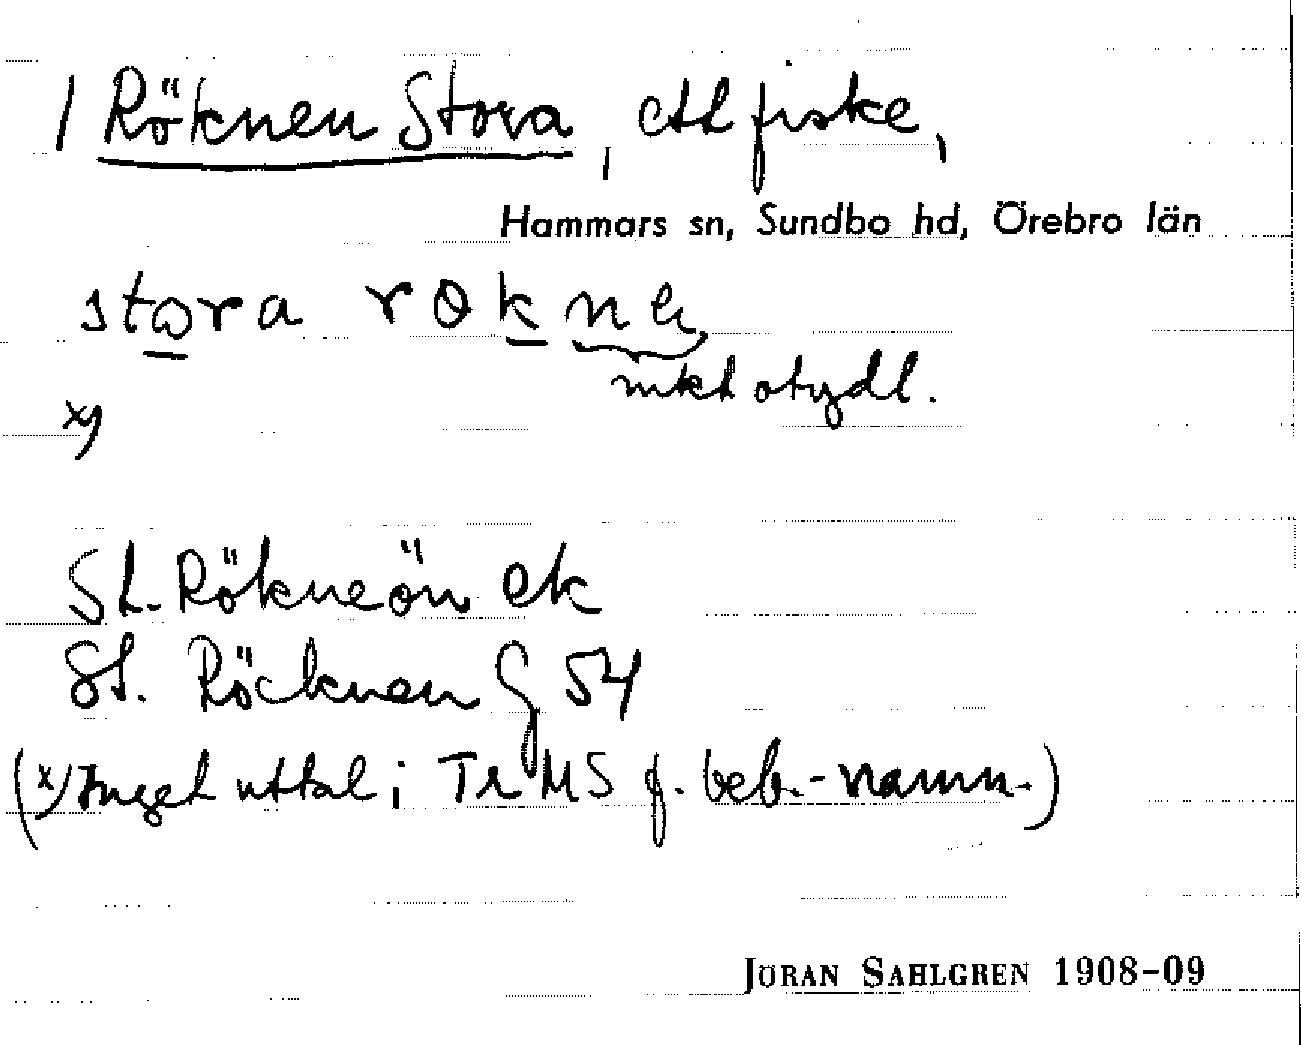 1 Röknen Stora, ett fiske,
Hammars sn, Sundbo hd, Örebro län
stora
mkt otydl.
x)
St. Rökneön ek
St. Röcknen G 54
(x) Inget uttal i TrMS f. beb.-namn.)
JÖRAN SAHLGREN 1908-09